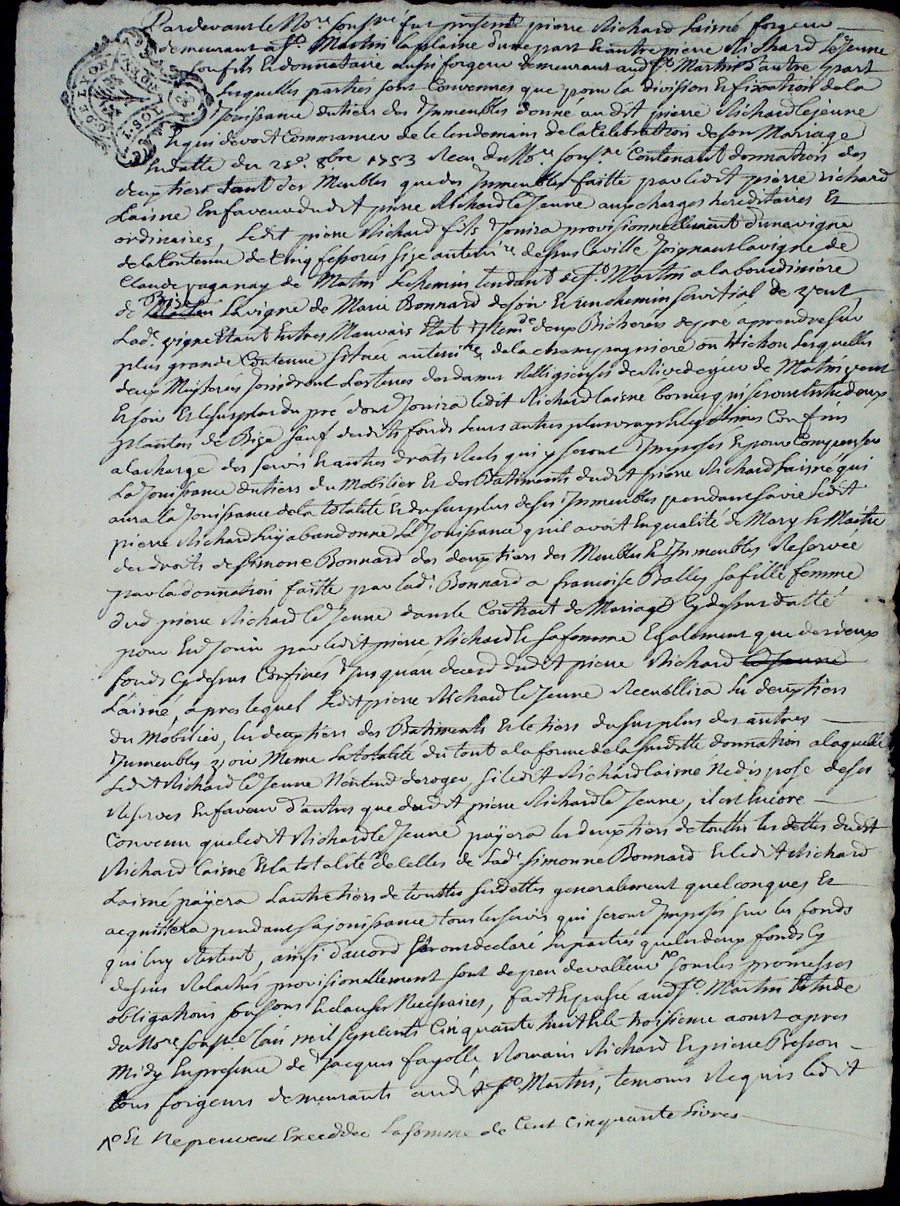 Pardevant le No.re Sous.né fut present pierre Richard Laisné forgeur
demeurant a St. Martin laplaine d'une part & autre pierre Richard Le Jeune
son fils & donnataire aussi forgeur demeurant aud. St. Martin d'autre part
Lesquelles parties sont Convenues que pour la division & fixation de la
Jouissance du tiers des Immeubles donné audit pierre Richard le jeune
& qui devoit Commancer de le lendemain de la Celebration de son Mariage
en datte du 25e. 8bre 1753 Receu du No.re Sous.né Contenant donnation des
deux tiers tant des Meubles que des Immeubles faitte par ledit pierre richard
Laisné En faveur dudit pierre Richard le Jeune aux charges hereditaires Et
ordinaires, Ledit pierre Richard fils Jouira provisionnellement d'une vigne
de la Contenue de Cinq fessorees size au terri.re dessus Laville Joignant la vigne de
Claude paganay de Matin Le chemin tendant de St. Martin a la bourdiniere
de Bize La vigne de Marie Bonnard de soir Et un chemin servitial de vent
Lad.e vigne Etant En tres Mauvais Etat & deux Bicherées de pré a prendre sur
plus grande Contenue Scituée au terri.re de la champagniere ou Hichon Lesquelles
deux Joindront Les terres des dames Relligieuses de de Matin vent
Et soir Et le surplus du pré dont Jouira ledit Richard laisné bornes qui seront
plantées de Bize sauf desdits fonds leurs autres plus vrays & legitimes Confins
a la charge des servis & autres droits Reels qui y seront Imposés Et pour Compenser
La Jouissance du tiers du Mobilier Et des Batiments dudit pierre Richard Laisné qui
aura la Jouissance de la totalité & du surplus de ses Immeubles pendant sa vie ledit
pierre Richard luy abandonne La Jouissance qu'il avoit En qualité de Mary & Maitre
des droits de Simone Bonnard des deux tiers des Meubles & Immeubles Reservée
par la donnation faitte par lad. Bonnard a francoise Balley sa fille femme
dud pierre Richard le Jeune dans le Contrait de Mariage Cy dessus datté
pour En Jouir par ledit pierre Richard & sa femme Egalement que des deux
fonds Cy dessus Confinés Jusquau deced dudit pierre Richard le Jeune
Laisné, apres lequel Ledit pierre Richard le Jeune Recueillira les deux tiers
du Mobilier, les deux tiers des Batiments & le tiers du surplus des autres
Immeubles voir Meme La totalité du tout a la forme de la susditte donnation a laquelle
Ledit Richard le Jeune N'entend deroger si ledit Richard laisné Ne dispose de ses
Reserves En faveur d'autres que dudit pierre Richard le Jeune, il est Encore
Convenu que ledit Richard le Jeune payera les deux tiers de touttes les dettes dudit
Richard laisné Et la totalité de Celles de Lad.e Simonne Bonnard Et ledit Richard
Laisné payera L'autre tiers de touttes ses dettes generalement quelconques Et
acquittera pendant sa jouissance tous les servis qui seront Imposés sur les fonds
qui luy Restent, ainsi d'accord Et ont declaré Les parties que les deux fonds Cy
dessus Relachés provisionellement sont de peu de valleur No sous les promesses
obligations soumissions & clauses Necessaires, fait & passé aud. St. Martin Etude
du No.re sous.né L'an mil sept cents Cinquante huit & le troisieme aoust apres
Midy En presence de Jacques fayolle Romain Richard & pierre Besson
tous forgeurs demeurants aud. St. Martin, temoins Requis ledit
No Et Ne peuvent Exceder La somme de Cent Cinquante Livres